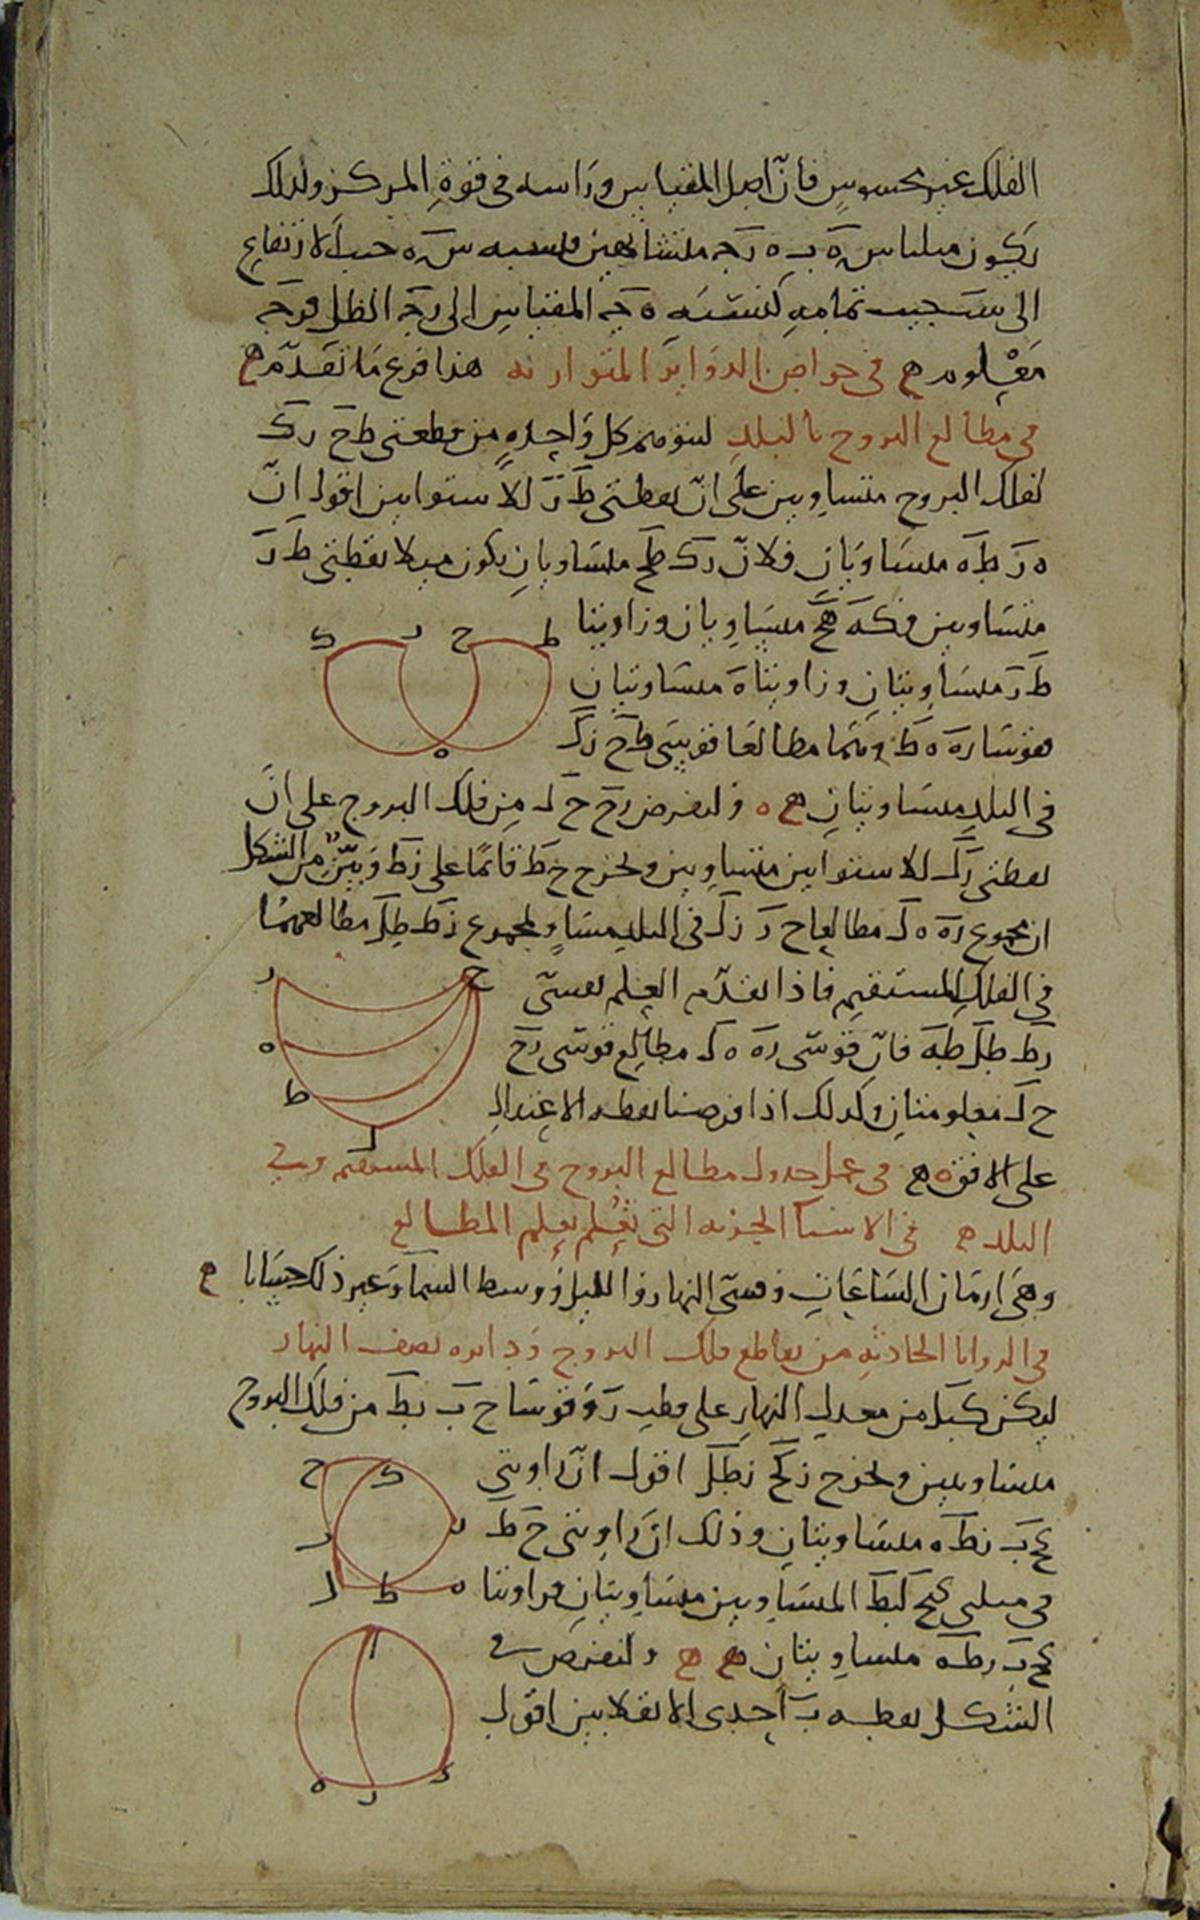 الفلك غير محسوس فان اصل المقياس وراسه في قوة المركز ولذلك
يكون مثلثا س ره ب ه رجه متشابهين فنسبه س ره جيب الارتفاع
الى جيب تمامه كنسبه ه جه المقياس الى رجه الظل فرجه
معلوم ه في خواص الدواير المتوازنه هذا فرع ما تقدم ه
في مطالع البروج بالبلد لنتوهم كل واحده من قطعتي طح رك
لفلك البروج متساويين على ان نقطتي ط ر للاستوايين اقول ان
ه ر ط ه متساويان فلان رك طح متساويان يكون ميلا نقطتي ط ر
متساويين فكه هح متساويان وزاويتا
ط ر متساويتان وزاويتا ه متساويتان
فقوسا ره ه ط وهما مطالعا قوسي طح زك
في البلد متساويتان ه ه ولنفرض رح ح ل من فلك البروج على ان
نقطتي رل للاستوايين متساويين ونخرج ح ط قائما على زط وبين من الشكل
ان مجموع ره ه ل مطالعا ح ر زل في البلد مساو لمجموع زط طل مطالعهما
في الفلك المستقيم فاذا تقدم العلم بقسي
رط طل طه فان قوسي ره ه ل مطالع قوسي رح
ح ل معلومتان وكذلك اذا فرضنا نقطه الاعتدال
على الافق ه ه في عمل جدول مطالع البروج في الفلك المستقيم وفي
البلد ه في الاشيا الجزيه التي تعلم بعلم المطالع
وهي ازمان الساعات وقسي النهار والليل ووسط السما وغير ذلك حسابا ه
في الزوايا الحادثه من تقاطع فلك البروج ودايره نصف النهار
ليكن كبل من معدل النهار على قطب ر وقوسا ح ب بط من فلك البروج
متساويين ونخرج زكح زطل اقول ان زاويتي
كح ب بط ه متساويتان وذلك ان زاويتي ح ط
في مثلثي كبح لبط المتساويين متساويتان فزاويتا
كح ب رطه متساويتان ه ه ولنفرض في
الشكل نقطه ب احدى الانقلابين اقول